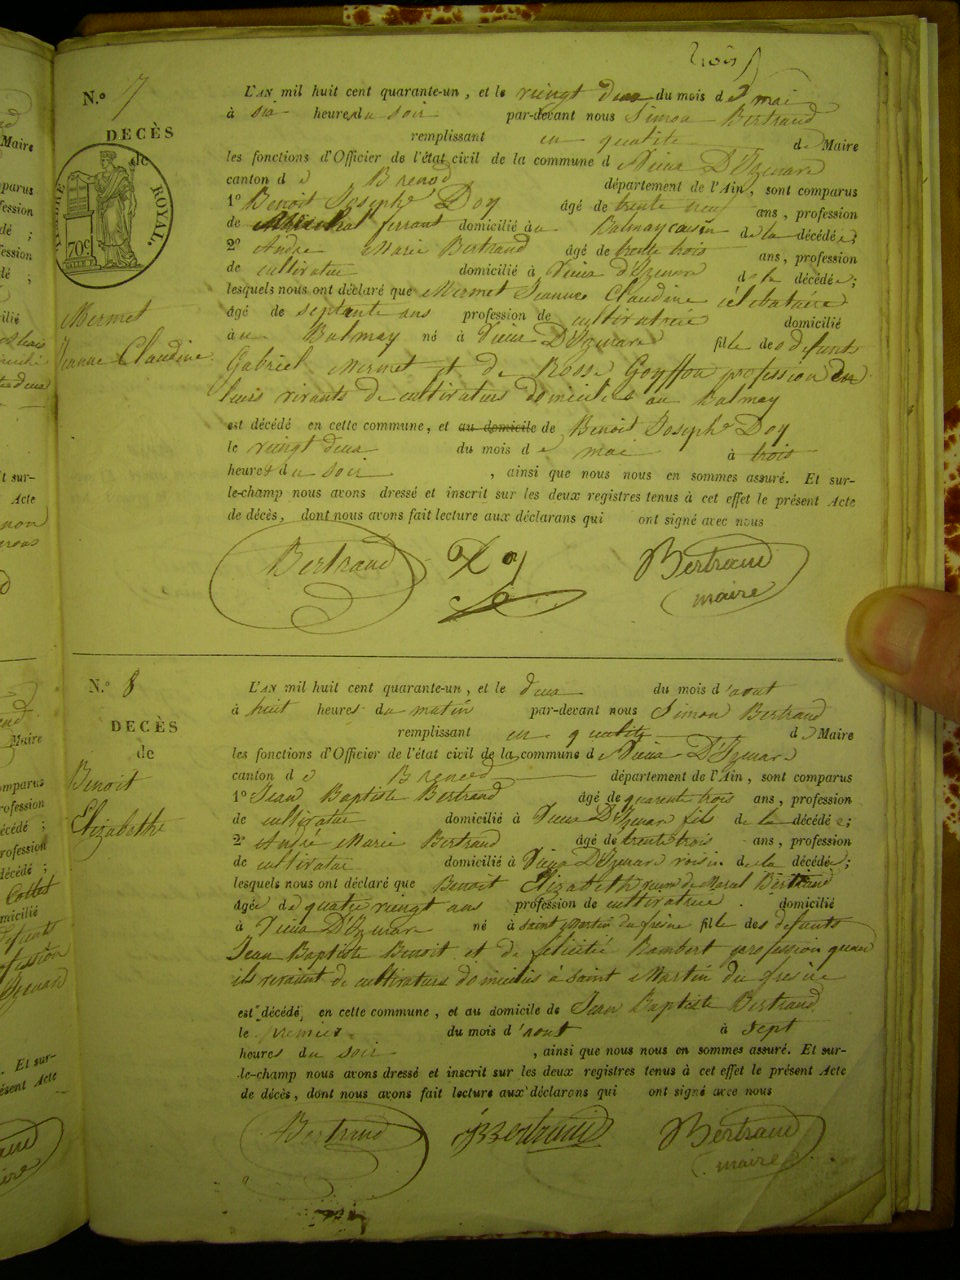 trois
N.º 7
DÉCÈS
de
TIMBRE ROYAL.
70c
Mermet
Jeanne Claudine
L'AN mil huit cent quarante-un, et le vingt deux du mois de mai
à six heures du soir par-devant nous Simon Bertrand
remplissant en qualité de Maire
les fonctions d'Officier de l'état civil de la commune de Vieux D'Izenave
canton de Brenod département de l'Ain, sont comparus
1º Benoit Joseph Doy âgé de trente neuf ans, profession
de ferrant domicilié au Balmay de la décédée;
2º André Marie Bertrand âgé de trente trois ans, profession
de cultivateur domicilié à Vieux d'Izenave de la décédée;
lesquels nous ont déclaré que Mermet Jeanne Claudine célibataire
âgé de septante ans profession de cultivatrice domicilié
au Balmay né à Vieux D'Izenave fille des défunts
Gabriel Mermet et de Rose Goyffon profession de
leurs vivants de cultivateurs domiciliés au Balmay
est décédé en cette commune, et au domicile de Benoit Joseph Doy
le vingt deux du mois de mai à trois
heures du soir, ainsi que nous nous en sommes assuré. Et sur-
le-champ nous avons dressé et inscrit sur les deux registres tenus à cet effet le présent Acte
de décès, dont nous avons fait lecture aux déclarans qui ont signé avec nous
Bertrand Doy Bertrand
maire
N.º 8
DÉCÈS
de
Benoit
Elizabethe
L'AN mil huit cent quarante-un, et le deux du mois d'aout
à huit heures du matin par-devant nous Simon Bertrand
remplissant en qualité de Maire
les fonctions d'Officier de l'état civil de la commune de Vieux D'Izenave
canton de Brenod département de l'Ain, sont comparus
1º Jean Baptiste Bertrand âgé de quarente trois ans, profession
de cultivateur domicilié à Vieux D'Izenave fils de la décédée;
2º André Marie Bertrand âgé de trente trois ans, profession
de cultivateur domicilié à Vieux D'Izenave voisin de la décédée;
lesquels nous ont déclaré que Benoit Elizabeth veuve de Bertrand
âgée de quatre vingt ans profession de cultivatrice domicilié
à Vieux D'Izenave né à saint Martin du fresne fille des défunts
Jean Baptiste Benoit et de felicité Rambert profession quan
ils vivaient de cultivateurs domiciliés à Saint Martin du fresne
est décédé, en cette commune, et au domicile de Jean Baptiste Bertrand
le premier du mois d'aout à sept
heures du soir, ainsi que nous nous en sommes assuré. Et sur-
le-champ nous avons dressé et inscrit sur les deux registres tenus à cet effet le présent Acte
de décès, dont nous avons fait lecture aux déclarans qui ont signé avec nous
Bertrand Bertrand Bertrand
maire